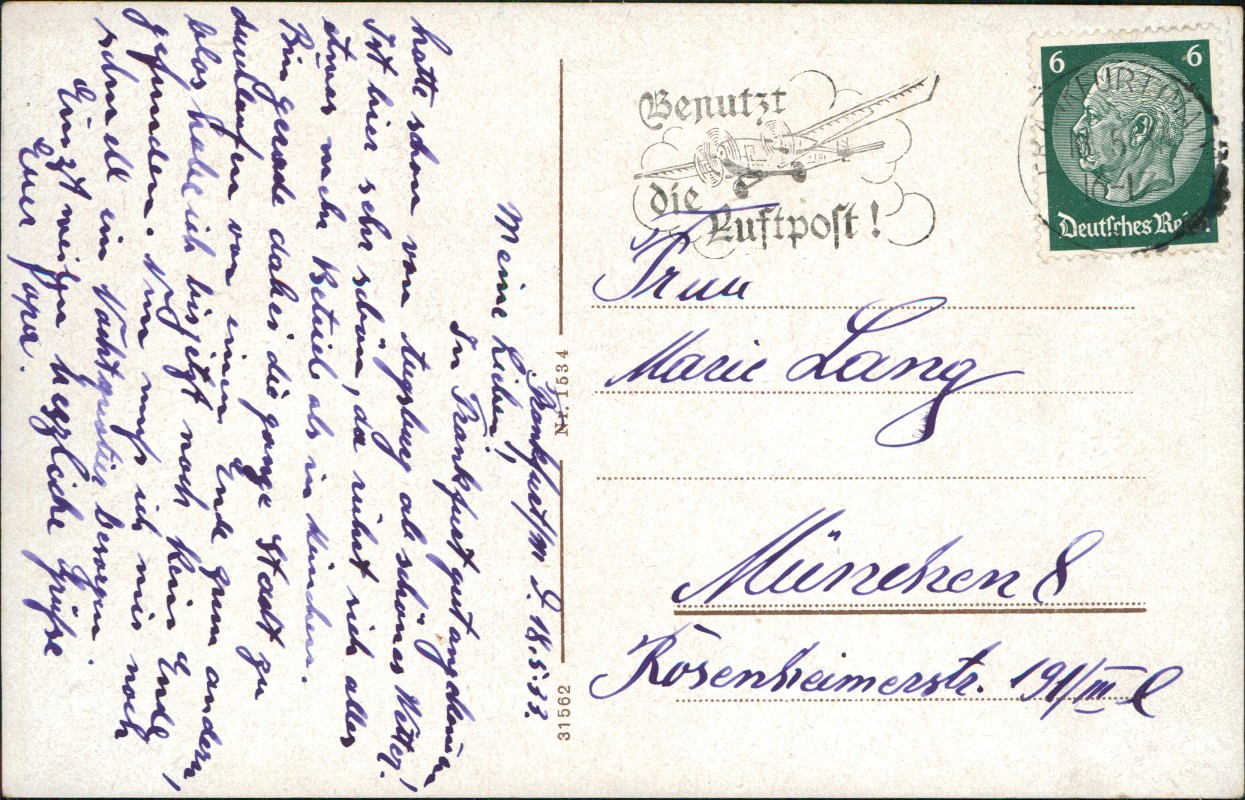 Frankfurt/M D. 18.5.33.
Meine Lieben!
In Frankfurt gut angekommen,
hatte schon von Augsburg ab schönes Wetter,
Ist hier sehr schön, da rührt sich alles
etwas mehr Betrieb als in München.
Bin gerade dabei die ganze Stadt zu
durchlaufen von einem Ende zum andern,
blos habe ich bis jetzt noch kein Ende
gefunden. Nun muß ich mir noch
schnell ein Nachtquatier besorgen.
Einzt weilen herzliche Grüße
Euer Papa.
Nr. 1534
31562
Benutzt
die
Luftpost!
6 6
Deutsches Reich
Frau
Marie Lang
München 8
Rosenheimerstr. 191/III l